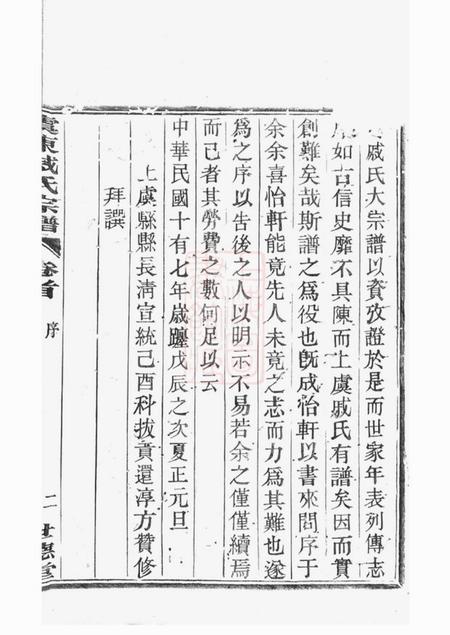 戚氏大宗譜以資攷證於是而世家年表列傳志
如古信史靡不具陳而上虞戚氏有譜矣因而實
創難矣哉斯譜之爲役也旣成怡軒以書來問序于
余余喜怡軒能竟先人未竟之志而力爲其難也遂
爲之序以告後之人以明示不易若余之僅僅續焉
而已者其勞費之數何足以云
中華民國十有七年歲躔戊辰之次夏正元旦
上虞縣縣長淸宣統己酉科拔貢還淳方贊修
拜譔
虞東戚氏宗譜 卷首 序 二 世德堂